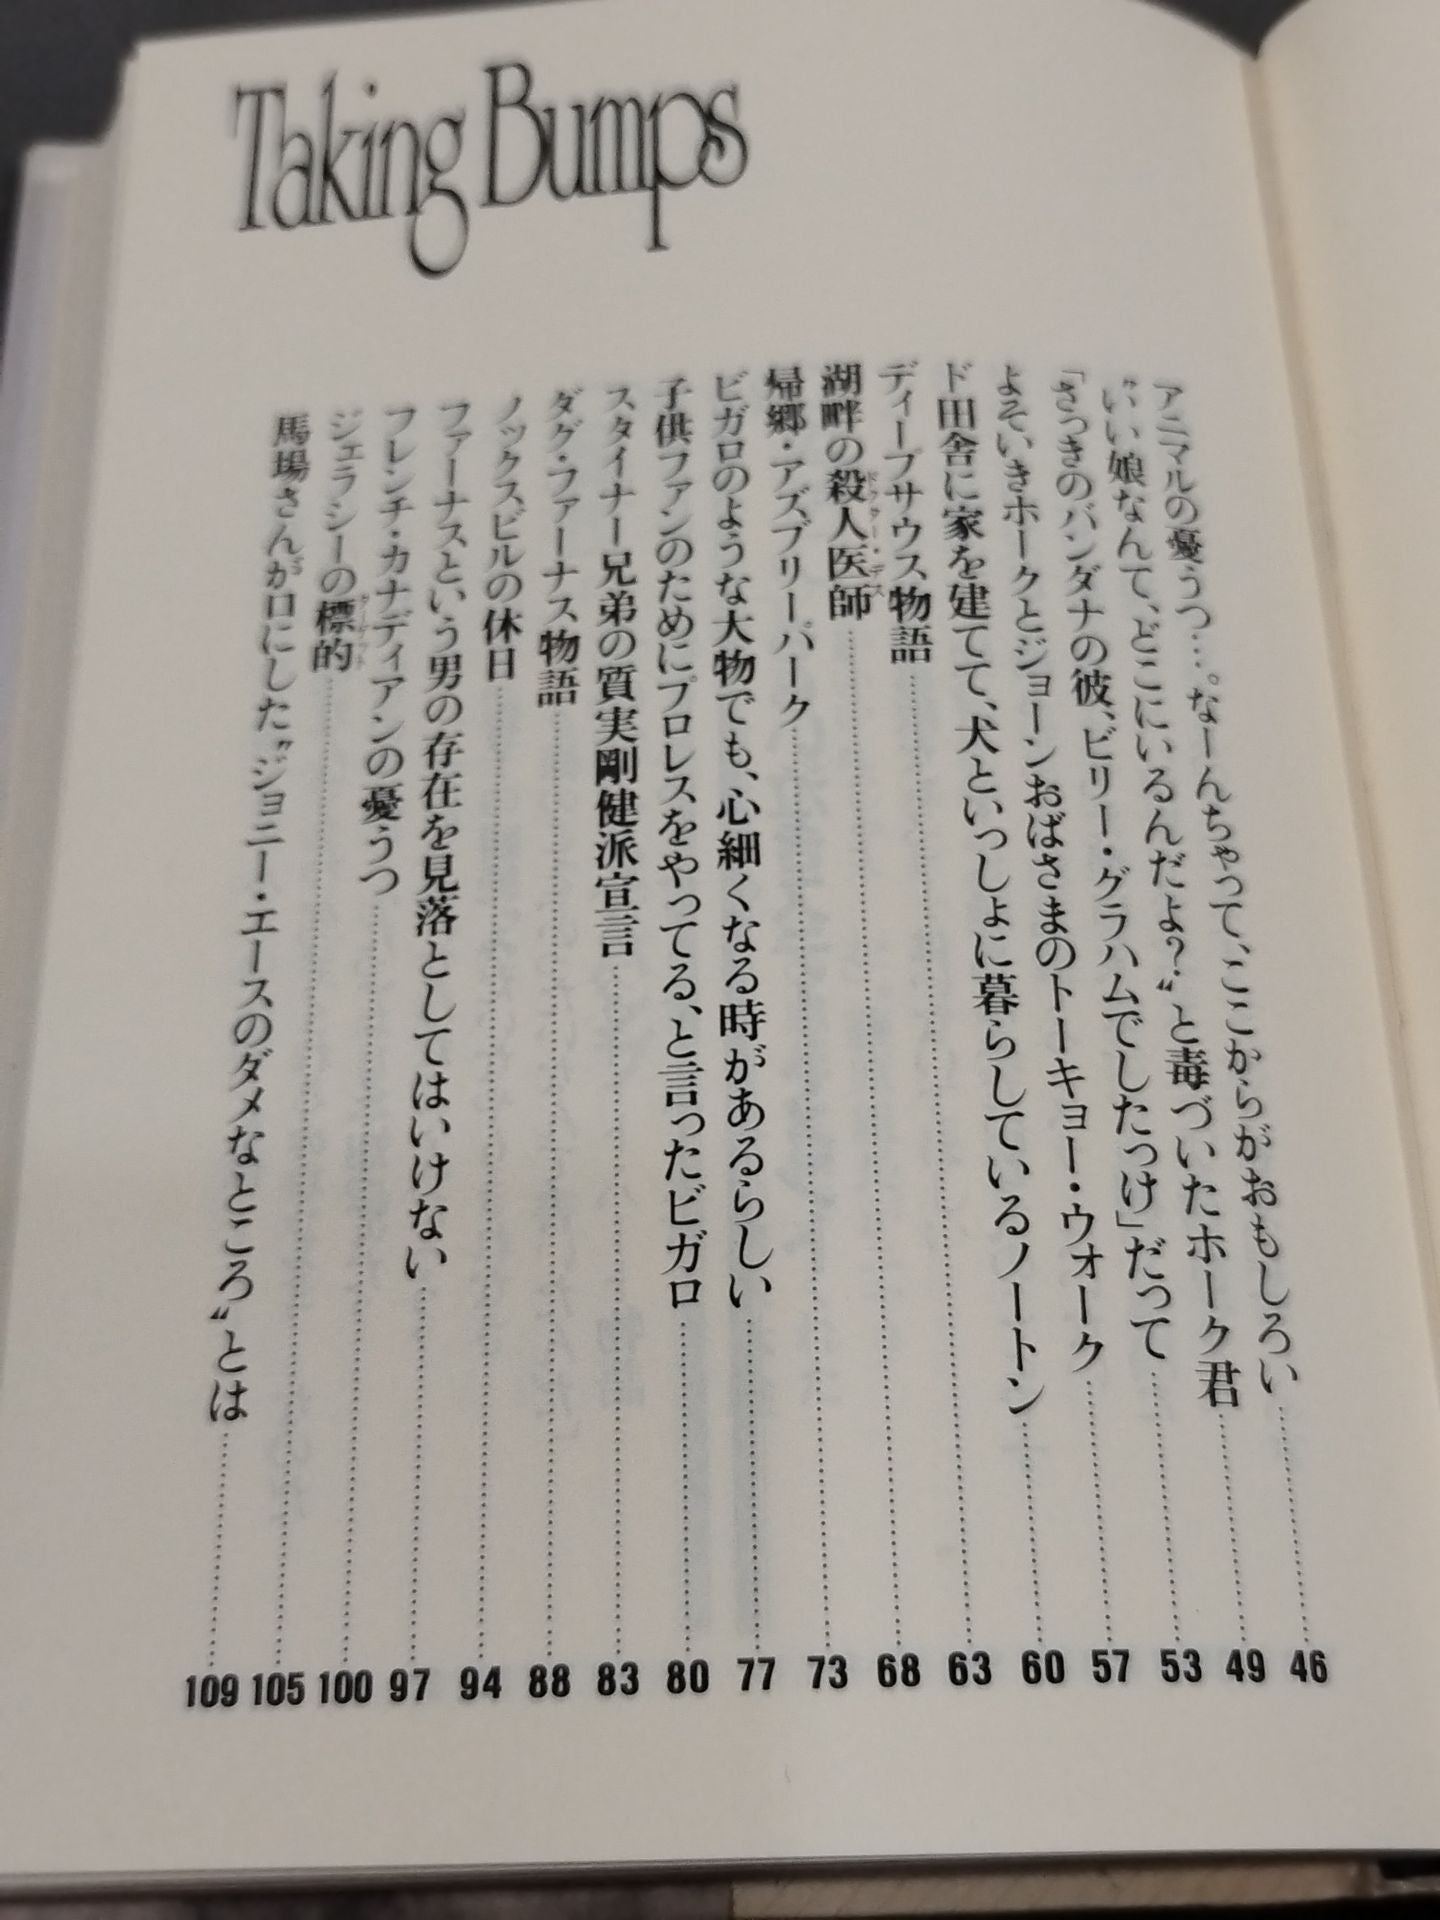 Taking Bumps
アニマルの憂うつ…。なーんちゃって、ここからがおもしろい 46
〝いい娘なんて、どこにいるんだよ?〟と毒づいたホーク君 49
「さっきのバンダナの彼、ビリー・グラハムでしたっけ」だって 53
よそいきホークとジョーンおばさまのトーキョー・ウォーク 57
ド田舎に家を建てて、犬といっしょに暮らしているノートン 60
ディープサウス物語 63
湖畔の殺人医師 68
ドクター・デス
帰郷・アズブリーパーク 73
ビガロのような大物でも、心細くなる時があるらしい 77
子供ファンのためにプロレスをやってる、と言ったビガロ 80
スタイナー兄弟の質実剛健派宣言 83
ダグ・ファーナス物語 88
ノックスビルの休日 94
ファーナスという男の存在を見落としてはいけない 97
フレンチ・カナディアンの憂うつ 100
ジェラシーの標的 105
ターゲット
馬場さんが口にした〝ジョニー・エースのダメなところ〟とは 109